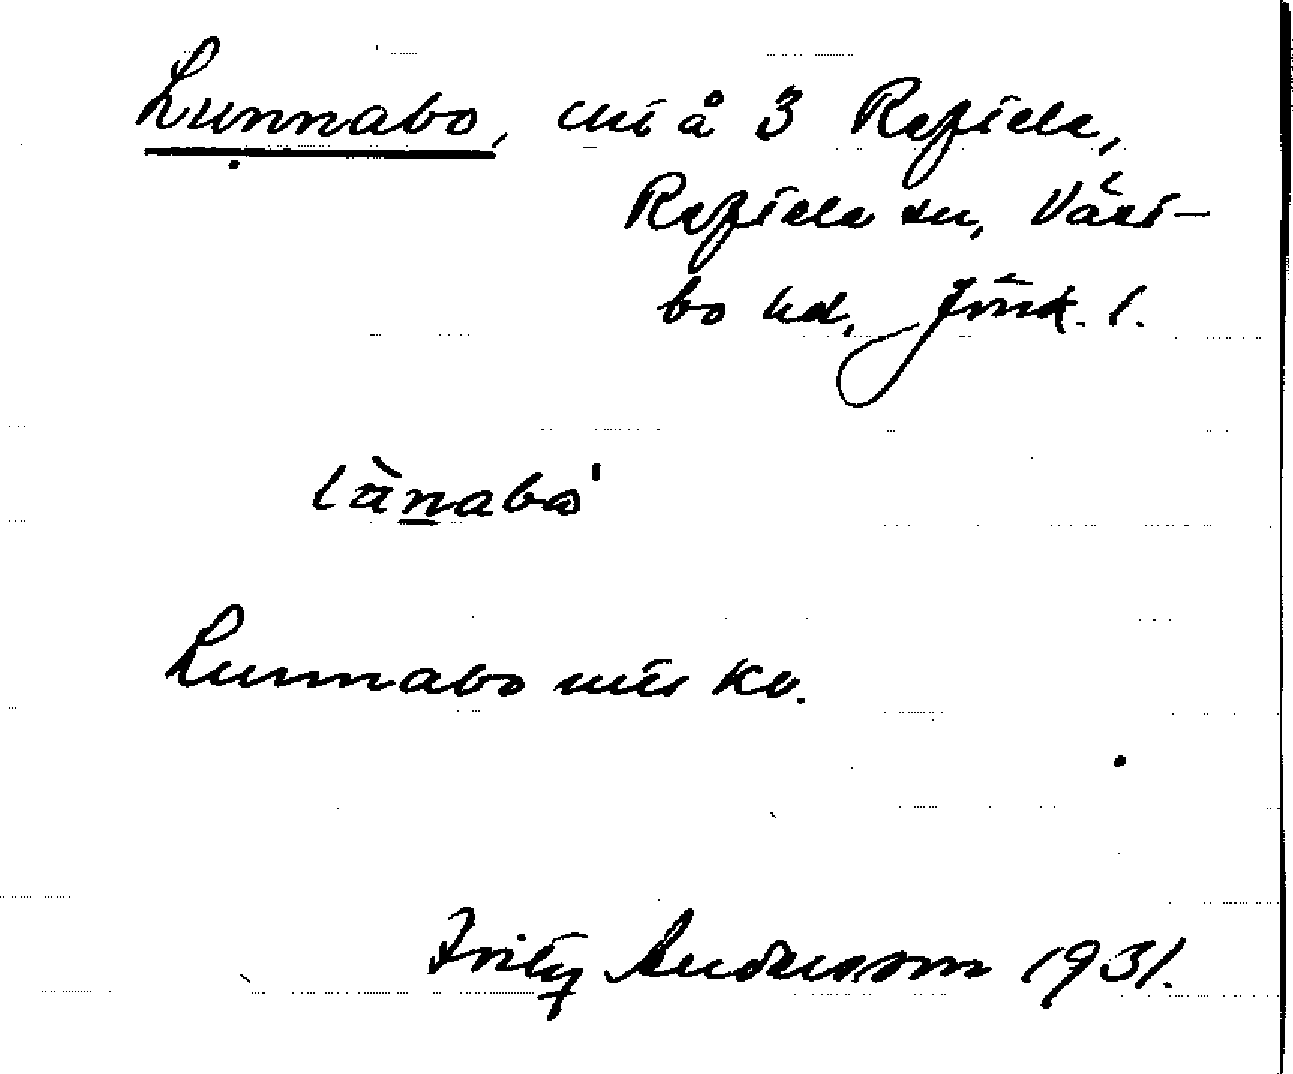 Lunnabo, uti å 3 Reftele,
Reftele sn, Väst-
bo hd, Jönk. l.
lànabo'
Lunnabo utes Kv.
Fritz Andersson 1931.